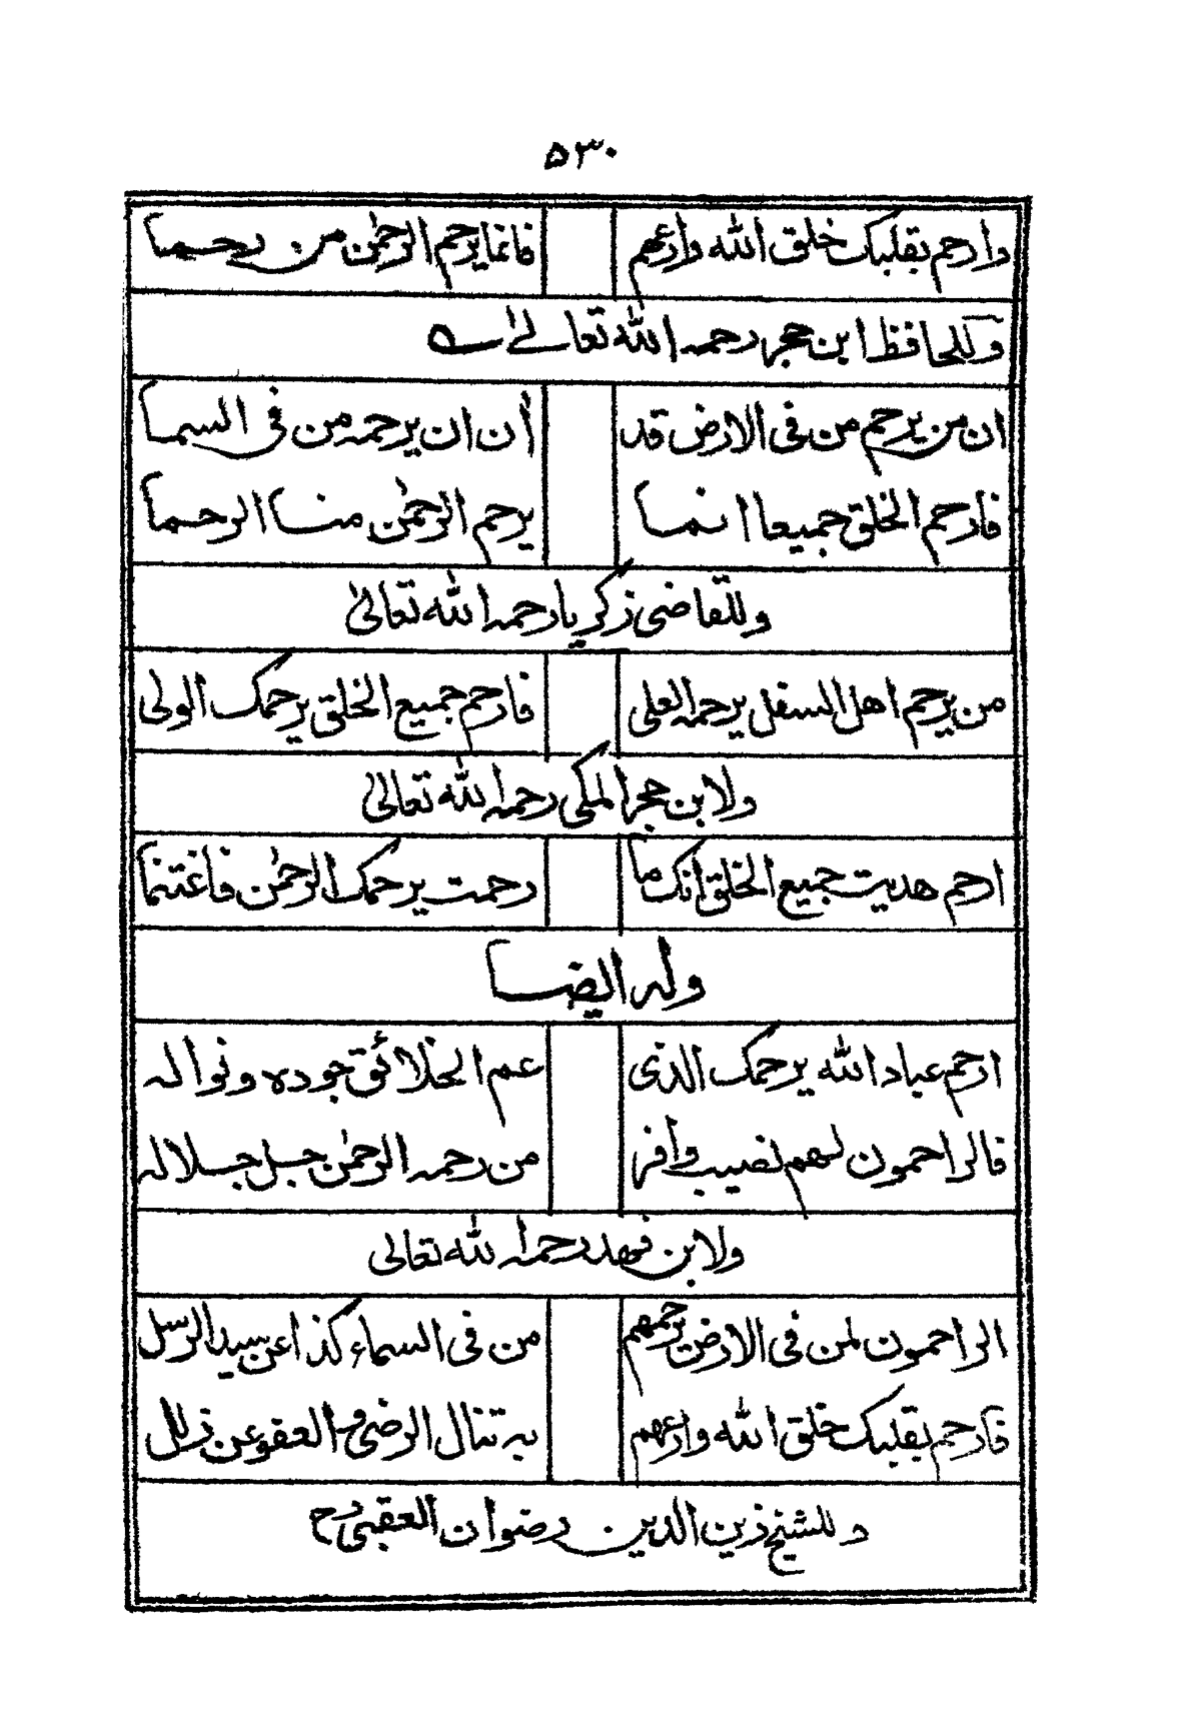 ۵۳۰
وارحم بقلبک خلق الله وارعهم فانما يرحم الرحمٰن من رحما
وللحافظ ابن حجر رحمه الله تعالےٰ ے
ان من يرحم من فی الارض قد أن ان يرحمه من فی السما
فارحم الخلق جميعا انما يرحم الرحمٰن منا الرحما
وللقاضی زکريا رحمه الله تعالیٰ
من يرحم اهل السفل يرحمه العلی فارحم جميع الخلق يرحمک الولی
ولابن حجر المکی رحمه الله تعالیٰ
ارحم هديت جميع الخلق انک ما رحمت يرحمک الرحمٰن فاغتنما
وله ايضا
ارحم عباد الله يرحمک الذی عم الخلائق جوده ونواله
فالراحمون لهم نصيب وافر من رحمه الرحمٰن جل جلاله
ولابن فهد رحمه الله تعالی
الراحمون لمن فی الارض يرحمهم من فی السماء کذا عن سيد الرسل
فارحم بقلبک خلق الله وارعهم به تنال الرضی و العفو عن زلل
وللشيخ زين الدين رضوان العقبی رح